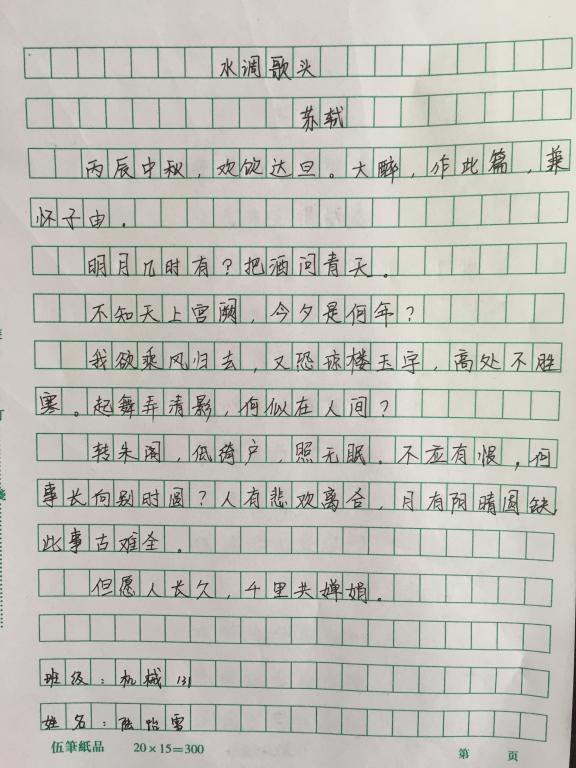 水调歌头
苏轼
丙辰中秋，欢饮达旦。大醉，作此篇，兼
怀子由。
明月几时有？把酒问青天。
不知天上宫阙，今夕是何年？
我欲乘风归去，又恐琼楼玉宇，高处不胜
寒。起舞弄清影，何似在人间？
转朱阁，低绮户，照无眠。不应有恨，何
事长向别时圆？人有悲欢离合，月有阴晴圆缺
此事古难全。
但愿人长久，千里共婵娟。
班级：机械131
姓名：陆怡雪
伍筆紙品 20×15=300 第 页